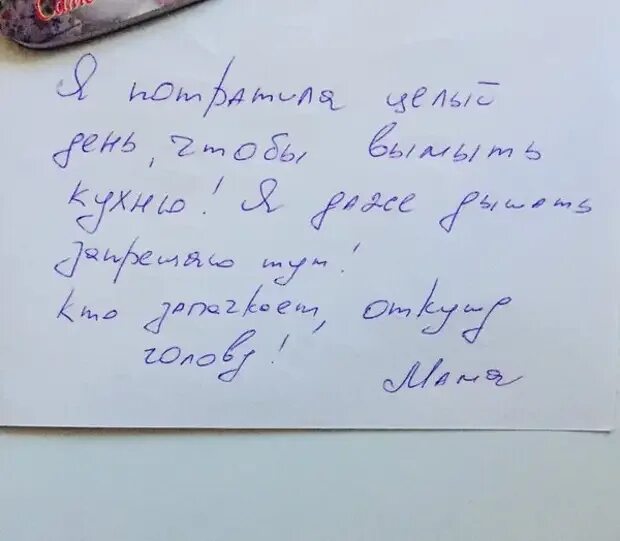 Я потратила целый
день, чтобы вымыть
кухню! Я даже дышать
запрещаю тут!
Кто запачкает, откушу
голову!
Мама